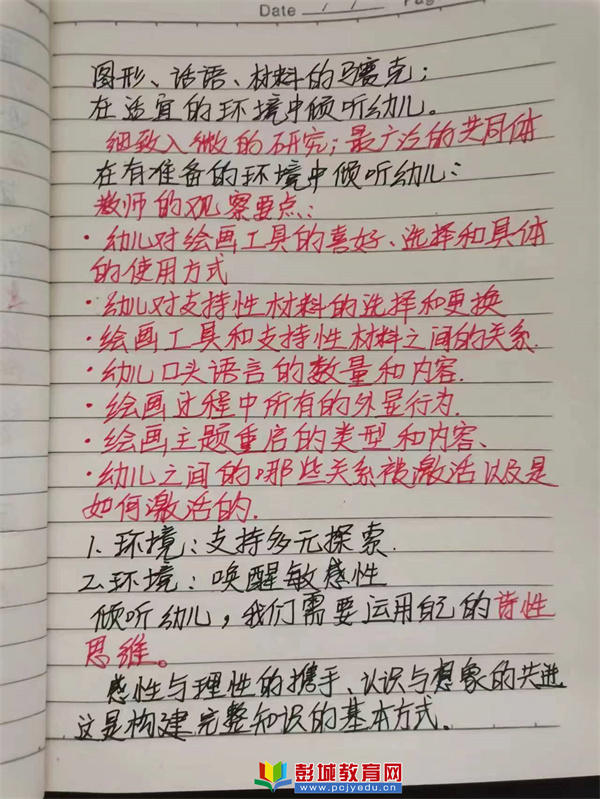 Date / / Pag
图形、话语、材料的马赛克；
在适宜的环境中倾听幼儿。
细致入微的研究；最广泛的共同体
在有准备的环境中倾听幼儿：
教师的观察要点：
·幼儿对绘画工具的喜好、选择和具体
的使用方式
·幼儿对支持性材料的选择和更换
·绘画工具和支持性材料之间的关系.
·幼儿口头语言的数量和内容.
·绘画过程中所有的外显行为.
·绘画主题重启的类型和内容、
·幼儿之间的哪些关系被激活以及是
如何激活的.
1.环境：支持多元探索.
2.环境：唤醒敏感性
倾听幼儿，我们需要运用自己的诗性
思维。
感性与理性的携手、认识与想象的共进
这是构建完整知识的基本方式。
彭城教育网
www.pcjyedu.cn